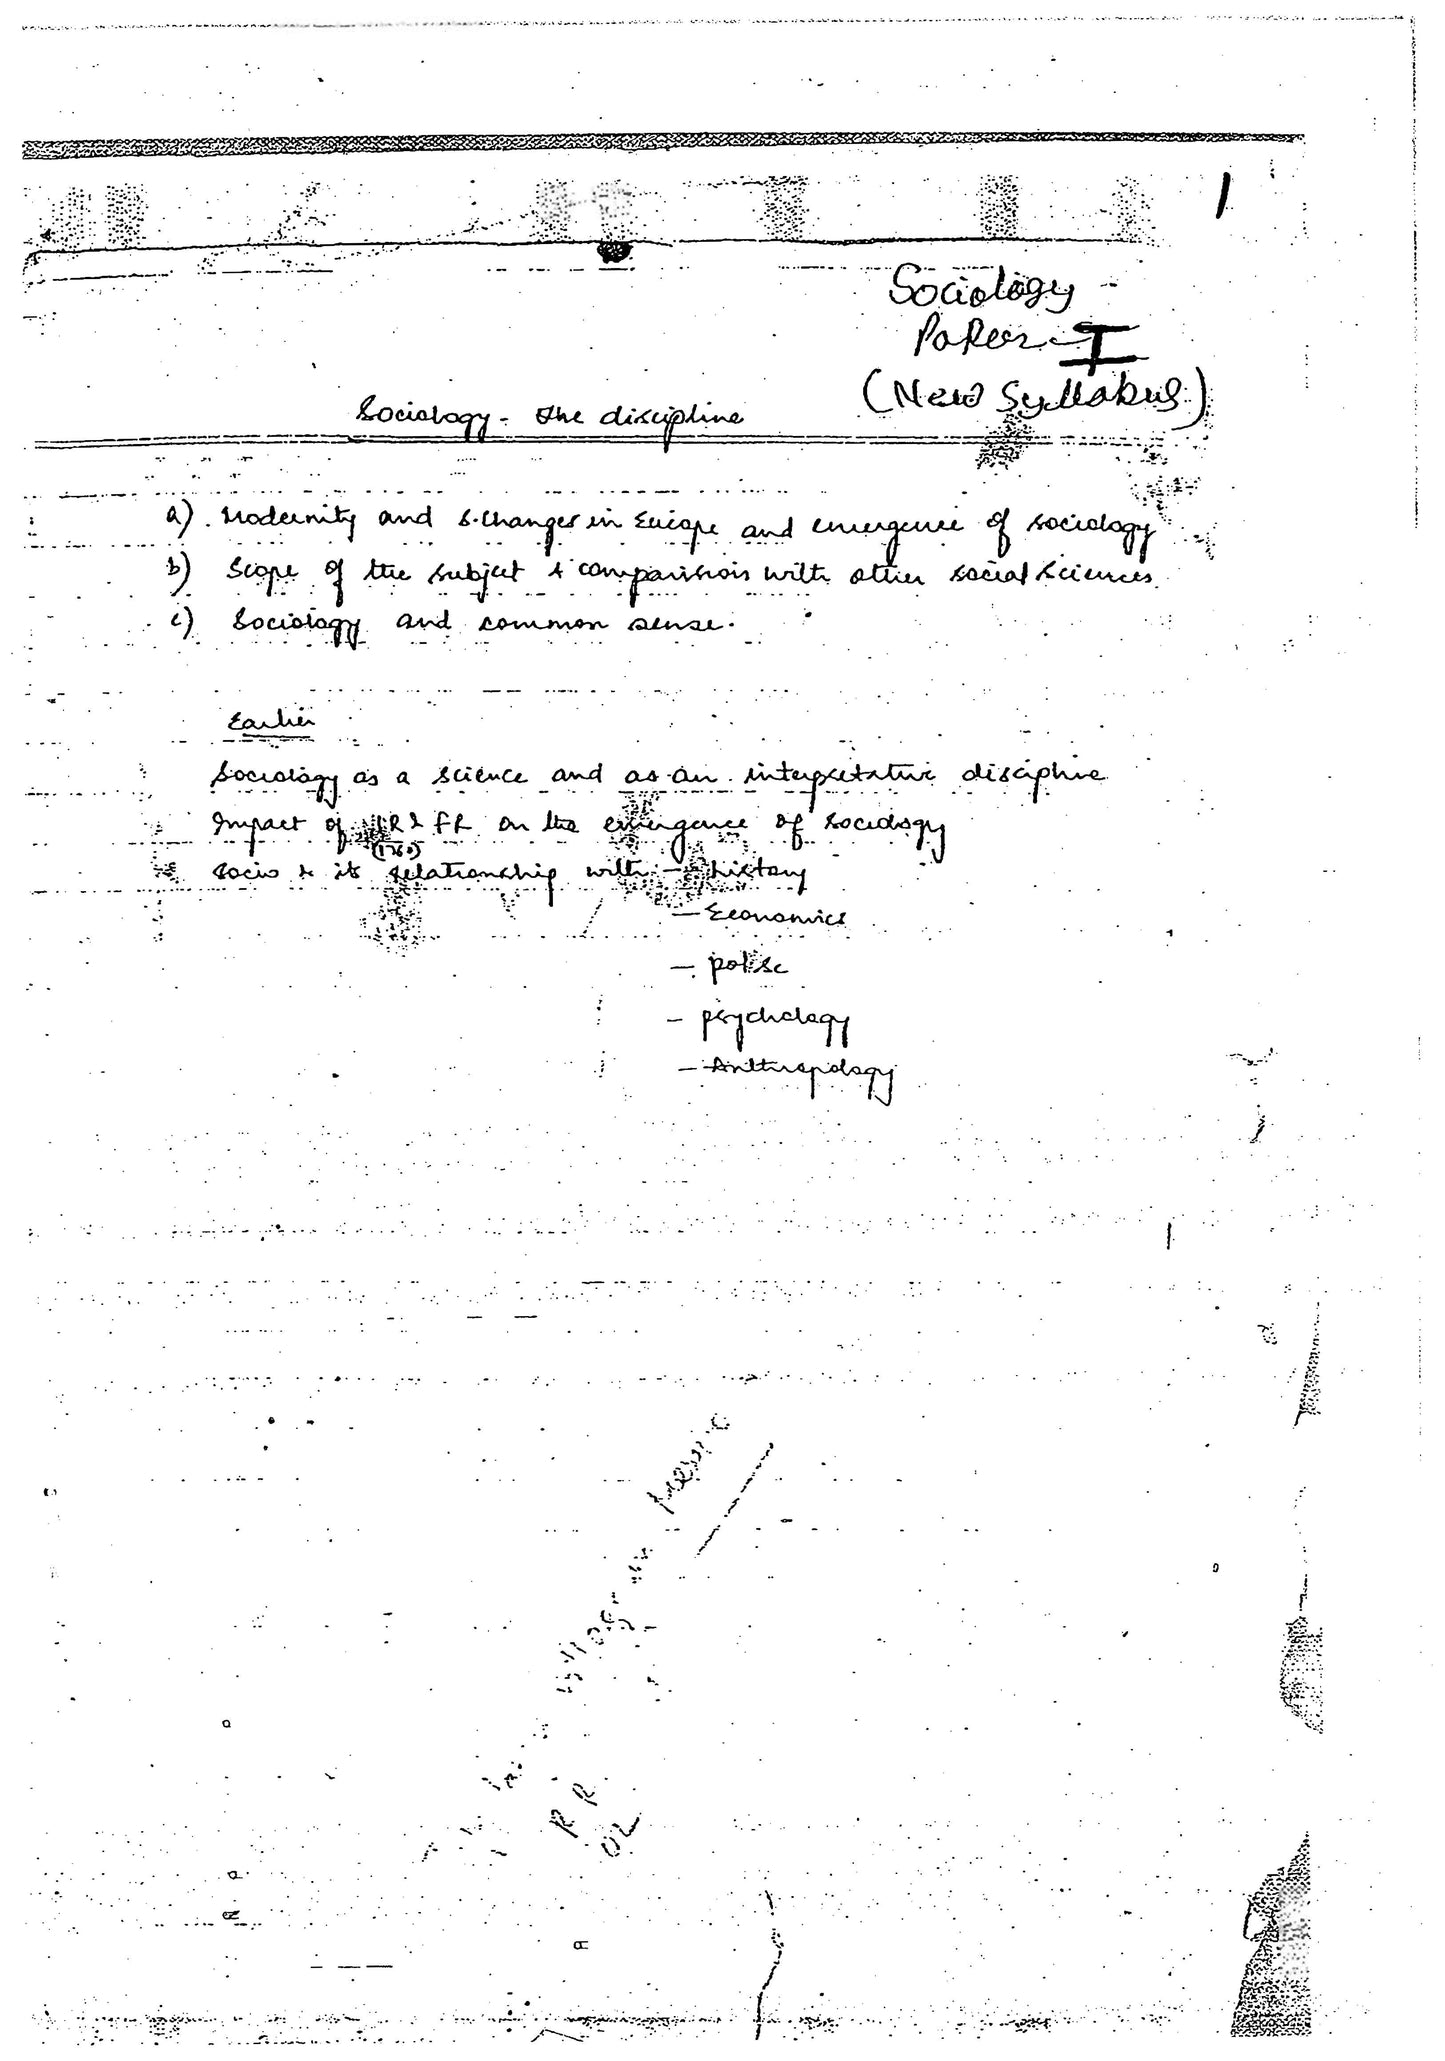 1
Sociology
Paper - I
(New Syllabus)
Sociology - the discipline
a) Modernity and S. Changes in Europe and emergence of sociology
b) Scope of the subject & comparisions with other social sciences
c) Sociology and common sense.
Earlier
Sociology as a science and as an interpretative discipline
Impact of IR & FR on the emergence of sociology
(1760)
Socio & its relationship with - history
- Economics
- pol.sc
- psychology
- Anthropology